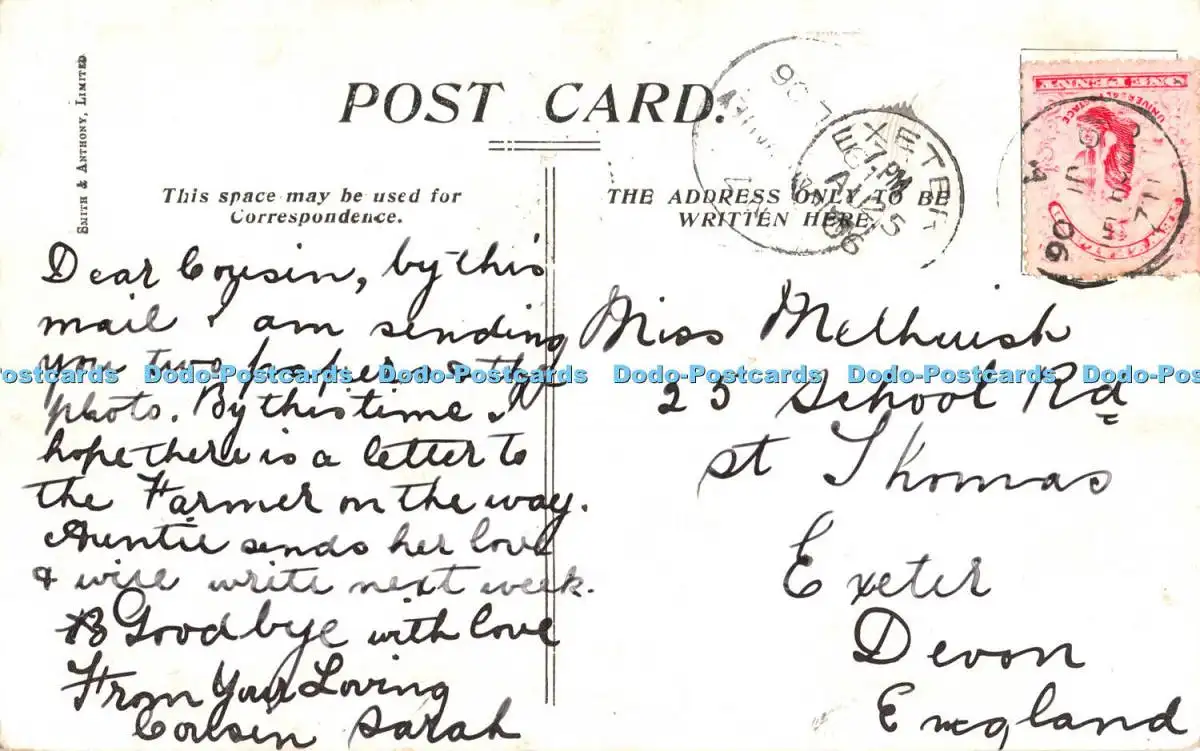 SMITH & ANTHONY, LIMITED
POST CARD.
This space may be used for
Correspondence.
THE ADDRESS ONLY TO BE
WRITTEN HERE.
EXETER
7.PM
AU 25
06
ONE PENNY
UNIVERSAL POSTAGE
06
Dear Cousin, by this
mail I am sending
you two papers & the
photo. By this time I
hope there is a letter to
the Farmer on the way.
Auntie sends her love
& will write next week.
Goodbye with love
From Your Loving
Cousin Sarah
Miss Melhuish
23 School Rd
St Thomas
Exeter
Devon
England
Dodo-Postcards Dodo-Postcards Dodo-Postcards Dodo-Postcards Dodo-Postcards